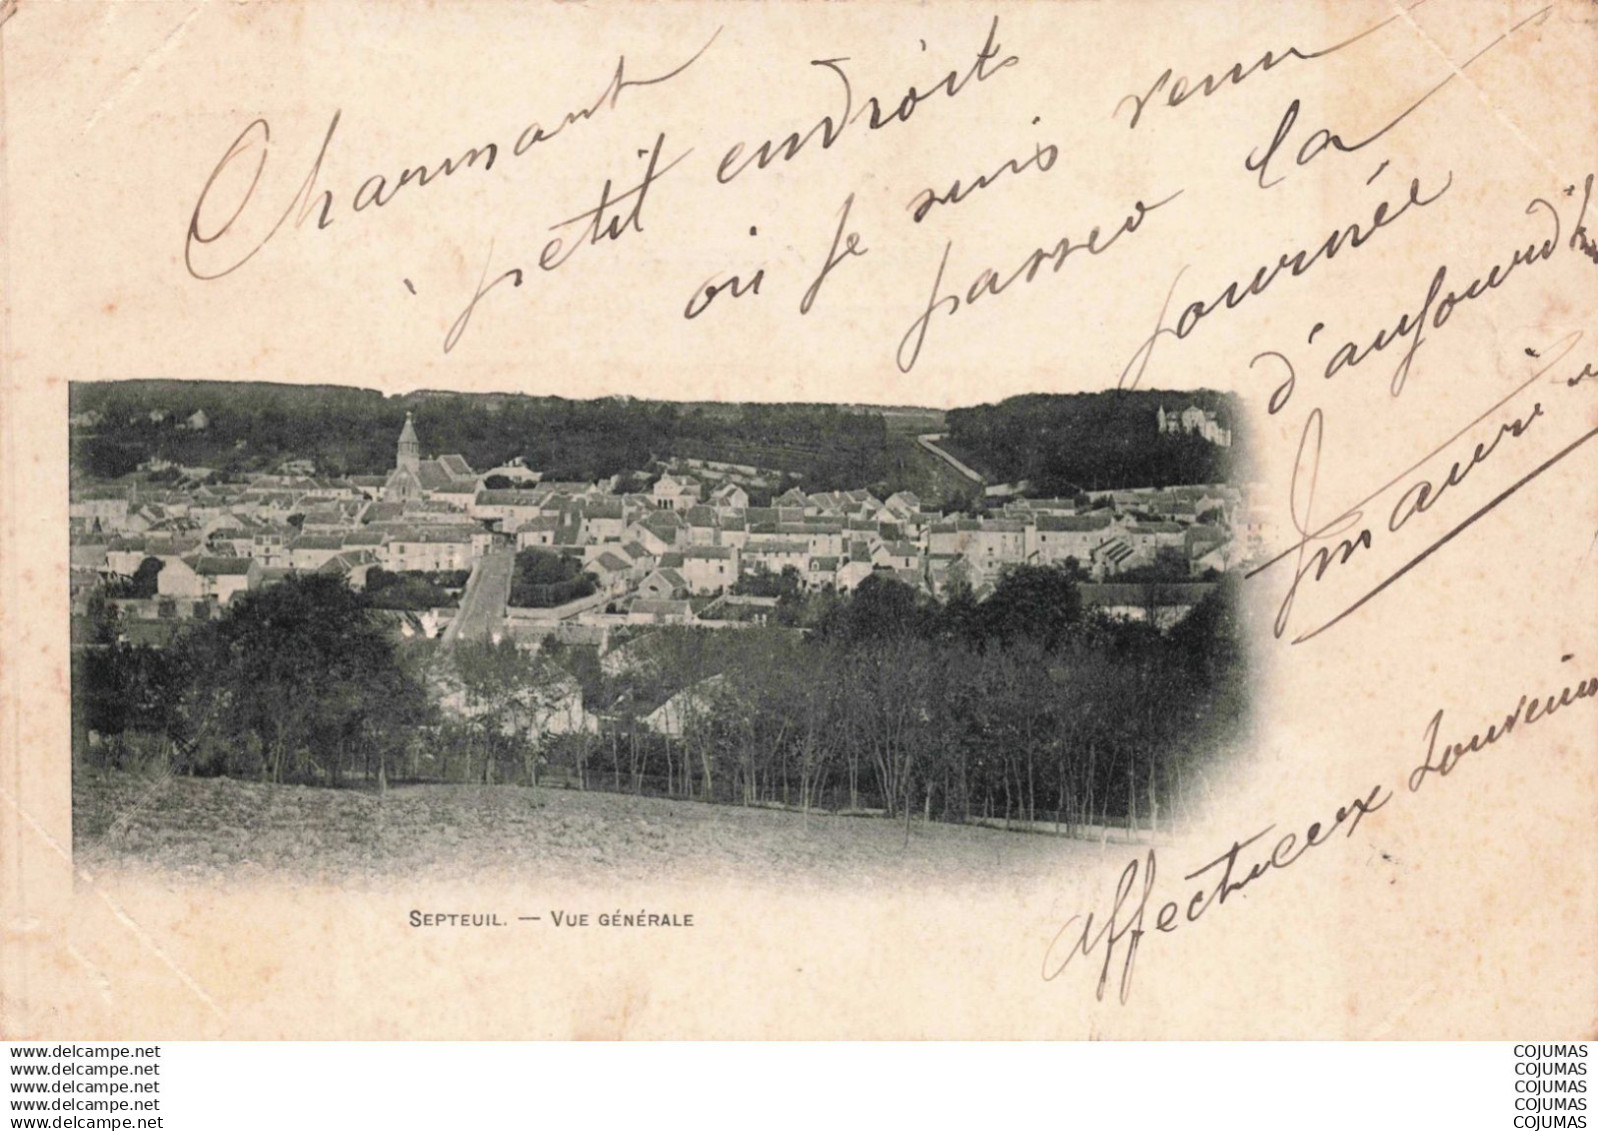 Charmant
petit endroit
où je suis venu
passer la
journée
d'aujourd'h
affectueux souvenirs
SEPTEUIL. — VUE GÉNÉRALE
www.delcampe.net
www.delcampe.net
www.delcampe.net
www.delcampe.net
www.delcampe.net
COJUMAS
COJUMAS
COJUMAS
COJUMAS
COJUMAS